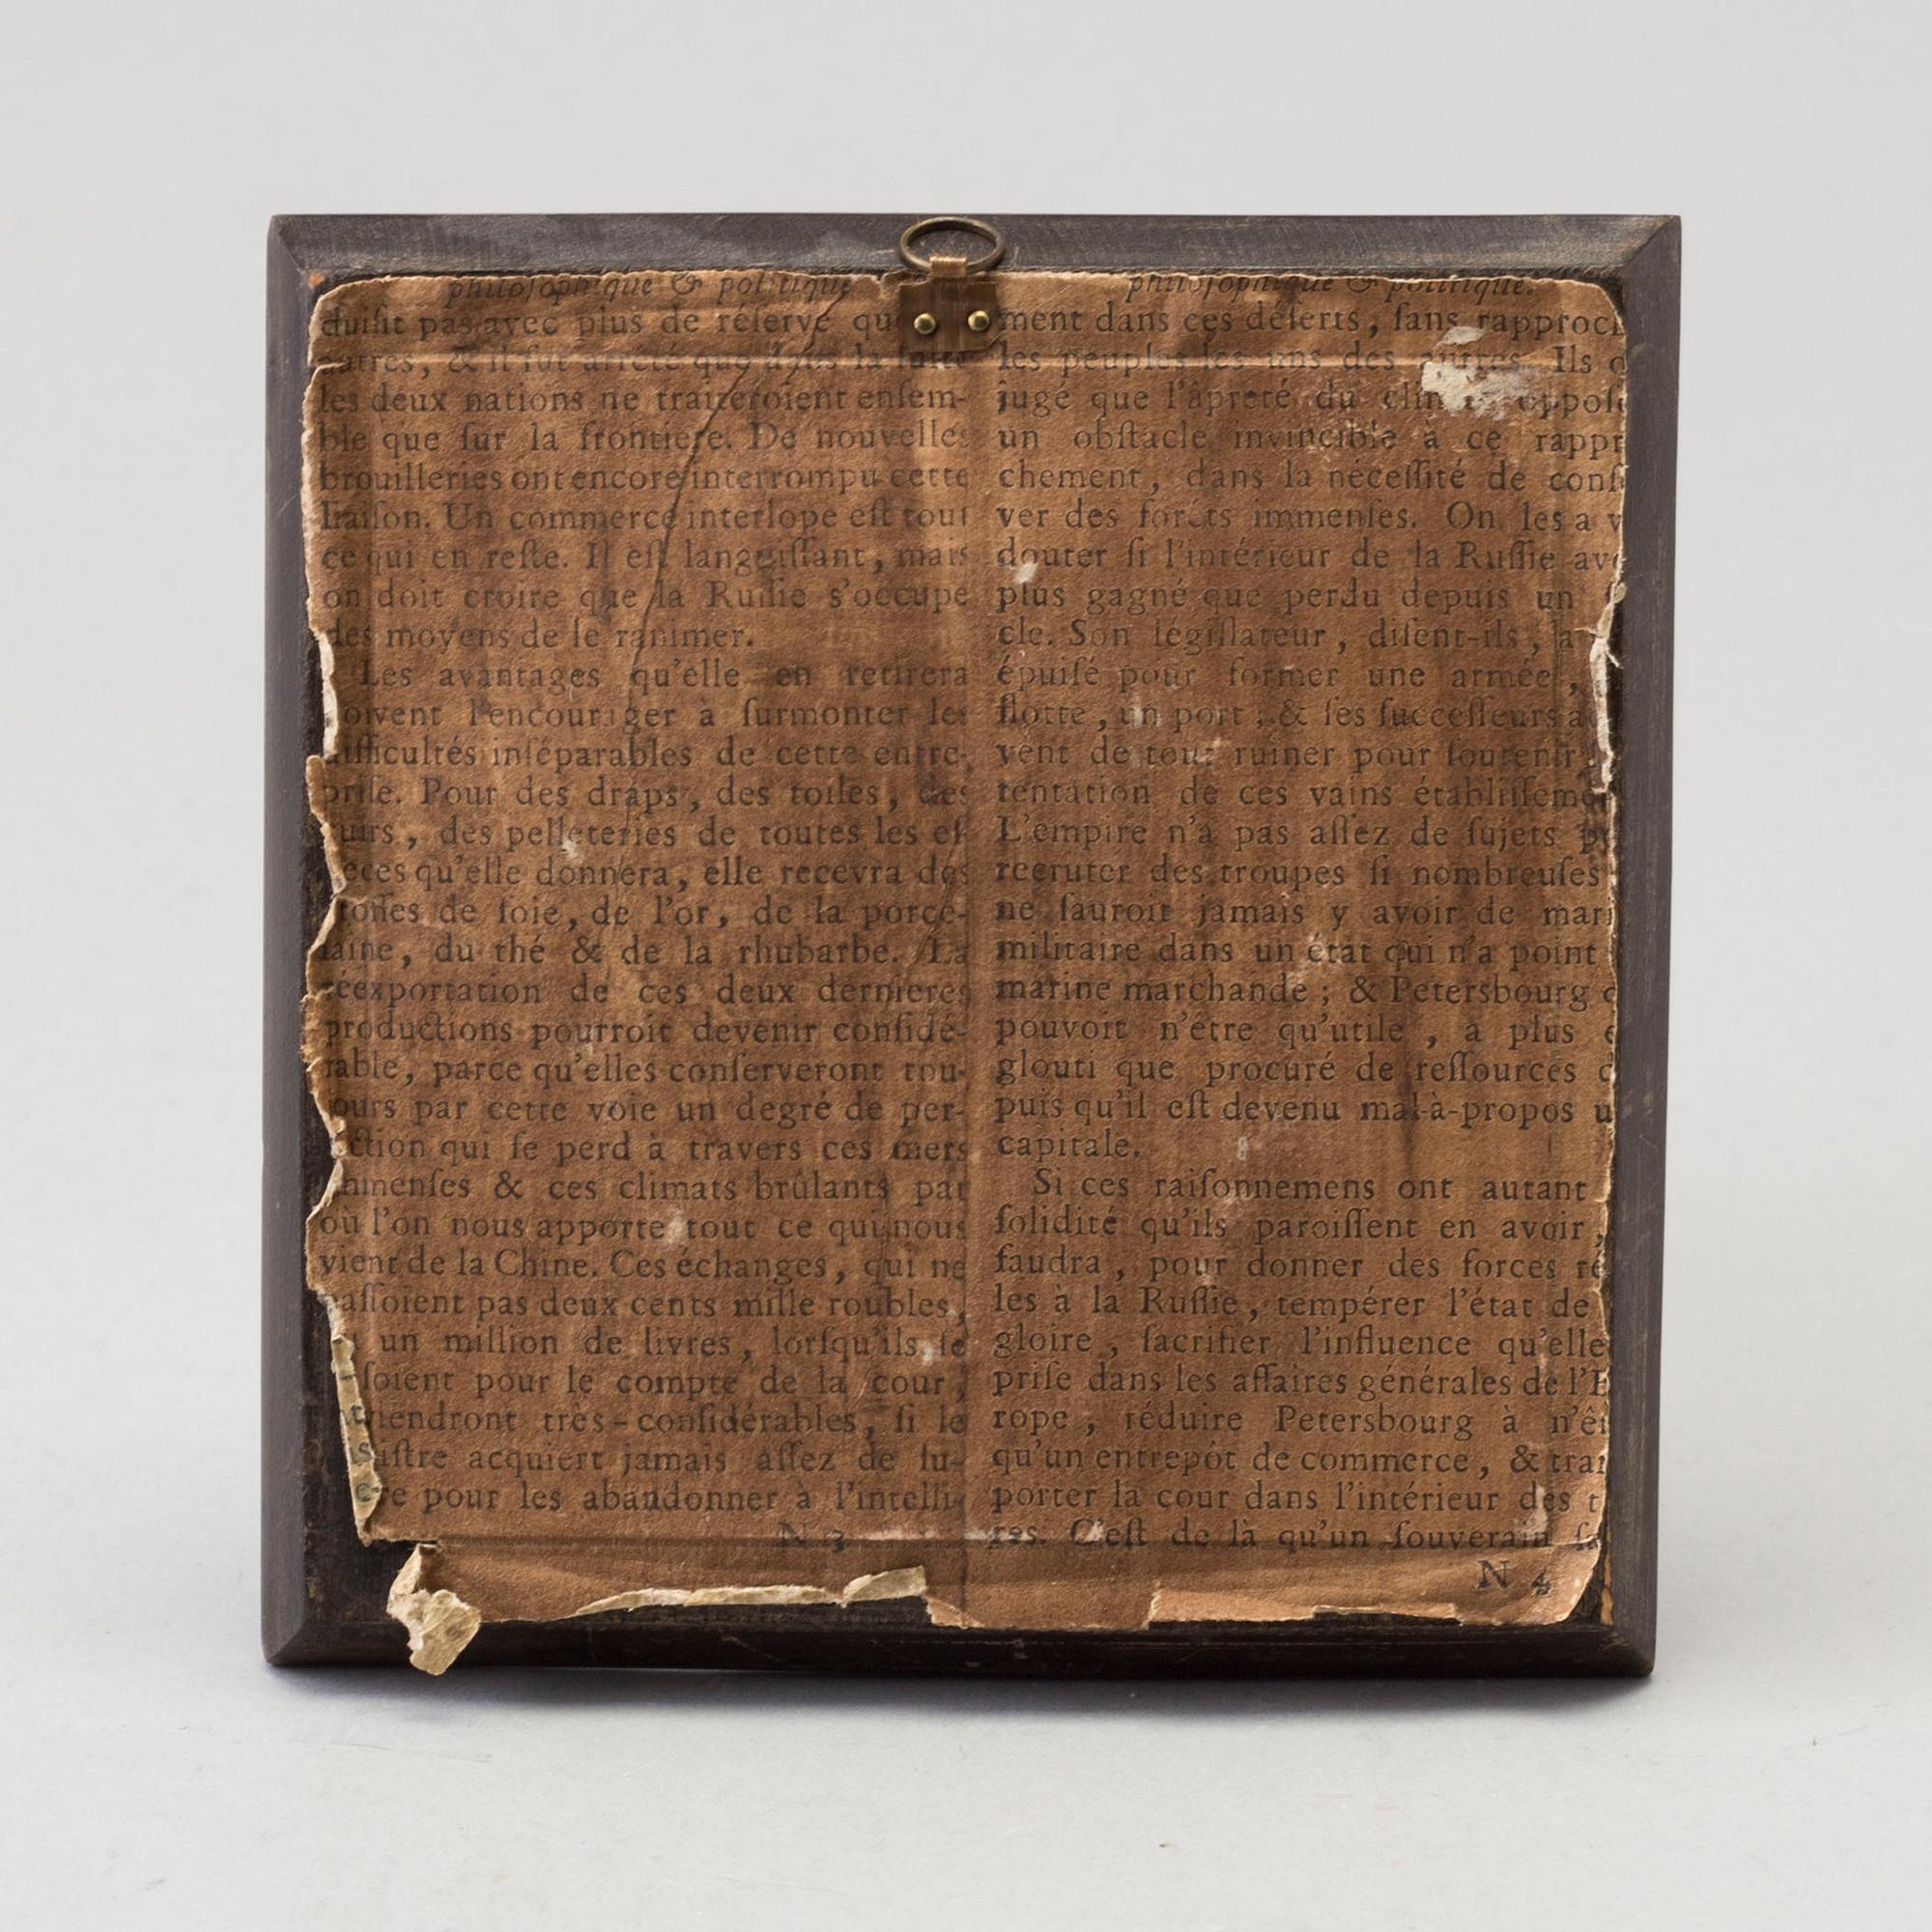 philosophique & politique
duisit pas avec plus de réserve qu
autres, & il fut arrêté que dans la suite
les deux nations ne traiteroient ensem-
ble que sur la frontiere. De nouvelles
brouilleries ont encore interrompu cette
liaison. Un commerce interlope est tout
ce qui en reste. Il est languissant, mais
on doit croire que la Russie s'occupe
des moyens de le ranimer.
Les avantages qu'elle en retirera
oivent l'encourager à surmonter les
difficultés inséparables de cette entre-
prise. Pour des draps, des toiles, des
cuirs, des pelleteries de toutes les es-
peces qu'elle donnera, elle recevra des
toffes de soie, de l'or, de la porce-
laine, du thé & de la rhubarbe. La
réexportation de ces deux dernieres
productions pourroit devenir considé-
rable, parce qu'elles conserveront tou-
jours par cette voie un degré de per-
ection qui se perd à travers ces mers
immenses & ces climats brûlants par
où l'on nous apporte tout ce qui nous
vient de la Chine. Ces échanges, qui ne
passoient pas deux cents mille roubles,
un million de livres, lorsqu'ils se
soient pour le compte de la cour,
iendront très-considérables, si le
istre acquiert jamais assez de lu-
e pour les abandonner à l'intelli-
N 3
philosophique & politique.
ment dans ces déserts, sans rapproch
les peuples les uns des autres. Ils o
jugé que l'âpreté du climat oppose
un obstacle invincible à ce rappr
chement, dans la nécessité de conse
ver des forêts immenses. On les a v
douter si l'intérieur de la Russie avo
plus gagné que perdu depuis un s
cle. Son législateur, disent-ils, a
épuisé pour former une armée,
flotte, un port, & ses successeurs a
vent de tout ruiner pour soutenir
tentation de ces vains établisseme
L'empire n'a pas assez de sujets po
recruter des troupes si nombreuses
ne sauroit jamais y avoir de mari
militaire dans un état qui n'a point
marine marchande; & Petersbourg q
pouvoit n'être qu'utile, a plus e
glouti que procuré de ressources d
puis qu'il est devenu mal-à-propos u
capitale.
Si ces raisonnemens ont autant
solidité qu'ils paroissent en avoir,
faudra, pour donner des forces ré
les à la Russie, tempérer l'état de
gloire, sacrifier l'influence qu'elle
prise dans les affaires générales de l'E
rope, réduire Petersbourg à n'êt
qu'un entrepôt de commerce, & tran
porter la cour dans l'intérieur des t
res. C'est de là qu'un souverain sa
N 4